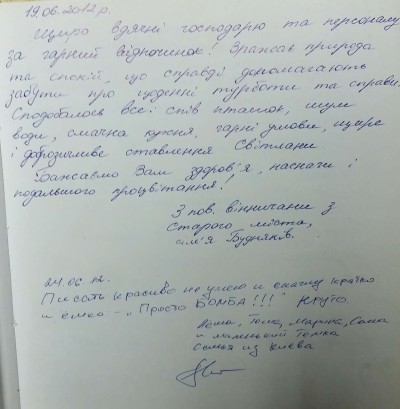 19.06.2012 р.
Щиро вдячні господарю та персоналу
за гарний відпочинок! Вражає природа
та спокій, що справді допомагають
забути про щоденні турботи та справи.
Сподобалось все: спів пташок, шум
води, смачна кухня, гарні умови, щире
і доброзичливе ставлення Світлани
Бажаємо Вам здоров'я, наснаги і
подальшого процвітання!
З пов. вінничани з
Старого міста,
сім'я Будняків.
24.06.12.
Писать красиво не умею и скажу кратко
и ёмко - "Просто БОМБА!!!" Круто.
Тома, Марина, Саша
и маленький Тёмка
Семья из Киева